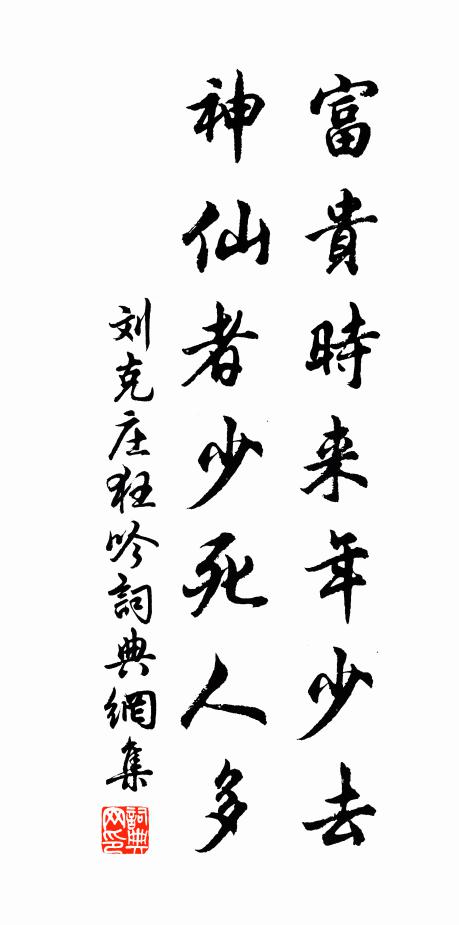 富貴時来年少去
神仙者少死人多
刘克庄狂吟詞典網集
詞典网印